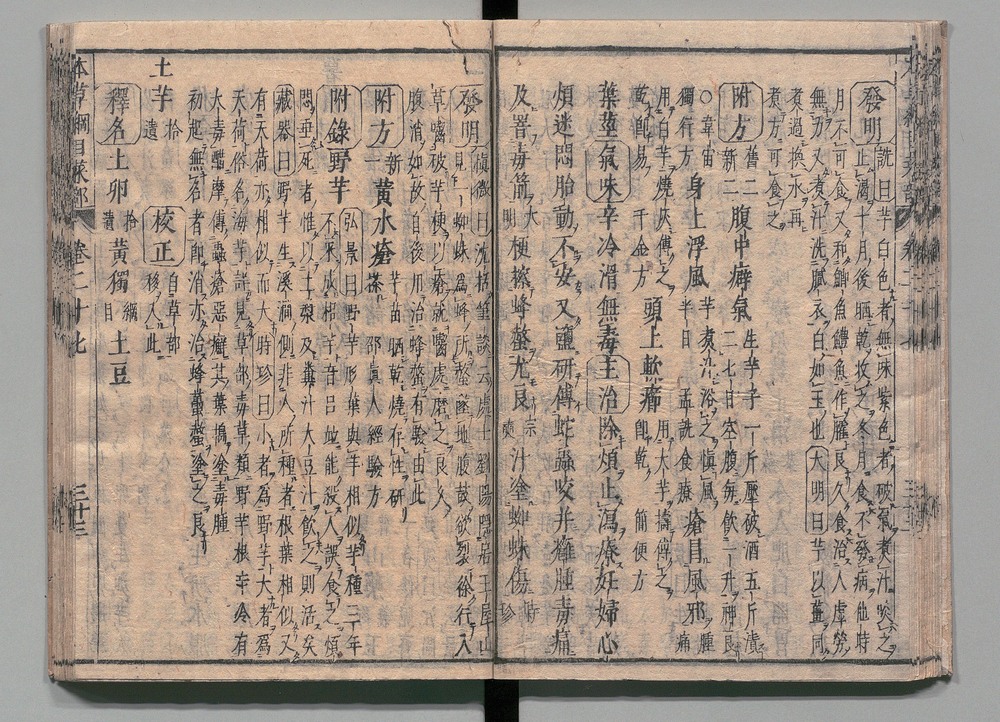 發明 詵曰芋白色者無味紫色者破氣煮汁啖之
止渴十月後晒乾收之冬月食不發病他時
月不可食又和鯽魚鱧魚作臛良久食治人虛勞
無力又煮汁洗膩衣白如玉也大明曰芋以薑同
煮過換水再
煮方可食之
附方 舊二新二 腹中癖氣 生芋子一斤壓破酒五斤漬
二七日空腹每飲一升神良
○韋宙
獨行方 身上浮風 芋煮汁浴之愼風
半日 孟詵食療 瘡冒風邪 腫痛
用白芋燒灰傅之
乾即易 千金方 頭上軟癤 用大芋擣傅之
即乾 簡便方
葉莖 氣味辛冷滑無毒 主治除煩止瀉療妊婦心
煩迷悶胎動不安又鹽研傅蛇蟲咬并癰腫毒痛
及罯毒箭 大明 梗擦蜂螫尤良 宗奭 汁塗蜘蛛傷 時珍
發明 愼微曰沈括筆談云處士劉陽隱居王屋山
見一蜘蛛爲蜂所螫墜地腹鼓欲裂徐行入
草嚙破芋梗以瘡就嚙處磨之良久
腹消如故自後用治蜂螫有驗由此
附方 新一 黃水瘡 芋苗晒乾燒存性研
搽 邵眞人經驗方
附錄 野芋 弘景曰野芋形葉與芋相似芋種三年
不采成梠芋音呂並能殺人誤食之煩
悶垂死者惟以土漿及糞汁大豆汁飲之則活矣
藏器曰野芋生溪澗側非人所種者根葉相似又
有天荷亦相似而大時珍曰小者爲野芋大者爲
天荷俗名海芋詳見草部毒草類野芋根辛冷有
大毒醋摩傅蟲瘡惡癬其葉擣塗毒腫
初起無名者即消亦治蜂蠆螫塗之良
土芋 拾遺 校正 自草部移入此
釋名 土卵 拾遺 黃獨 綱目 土豆
本草綱目菜部 卷二十七 三十三